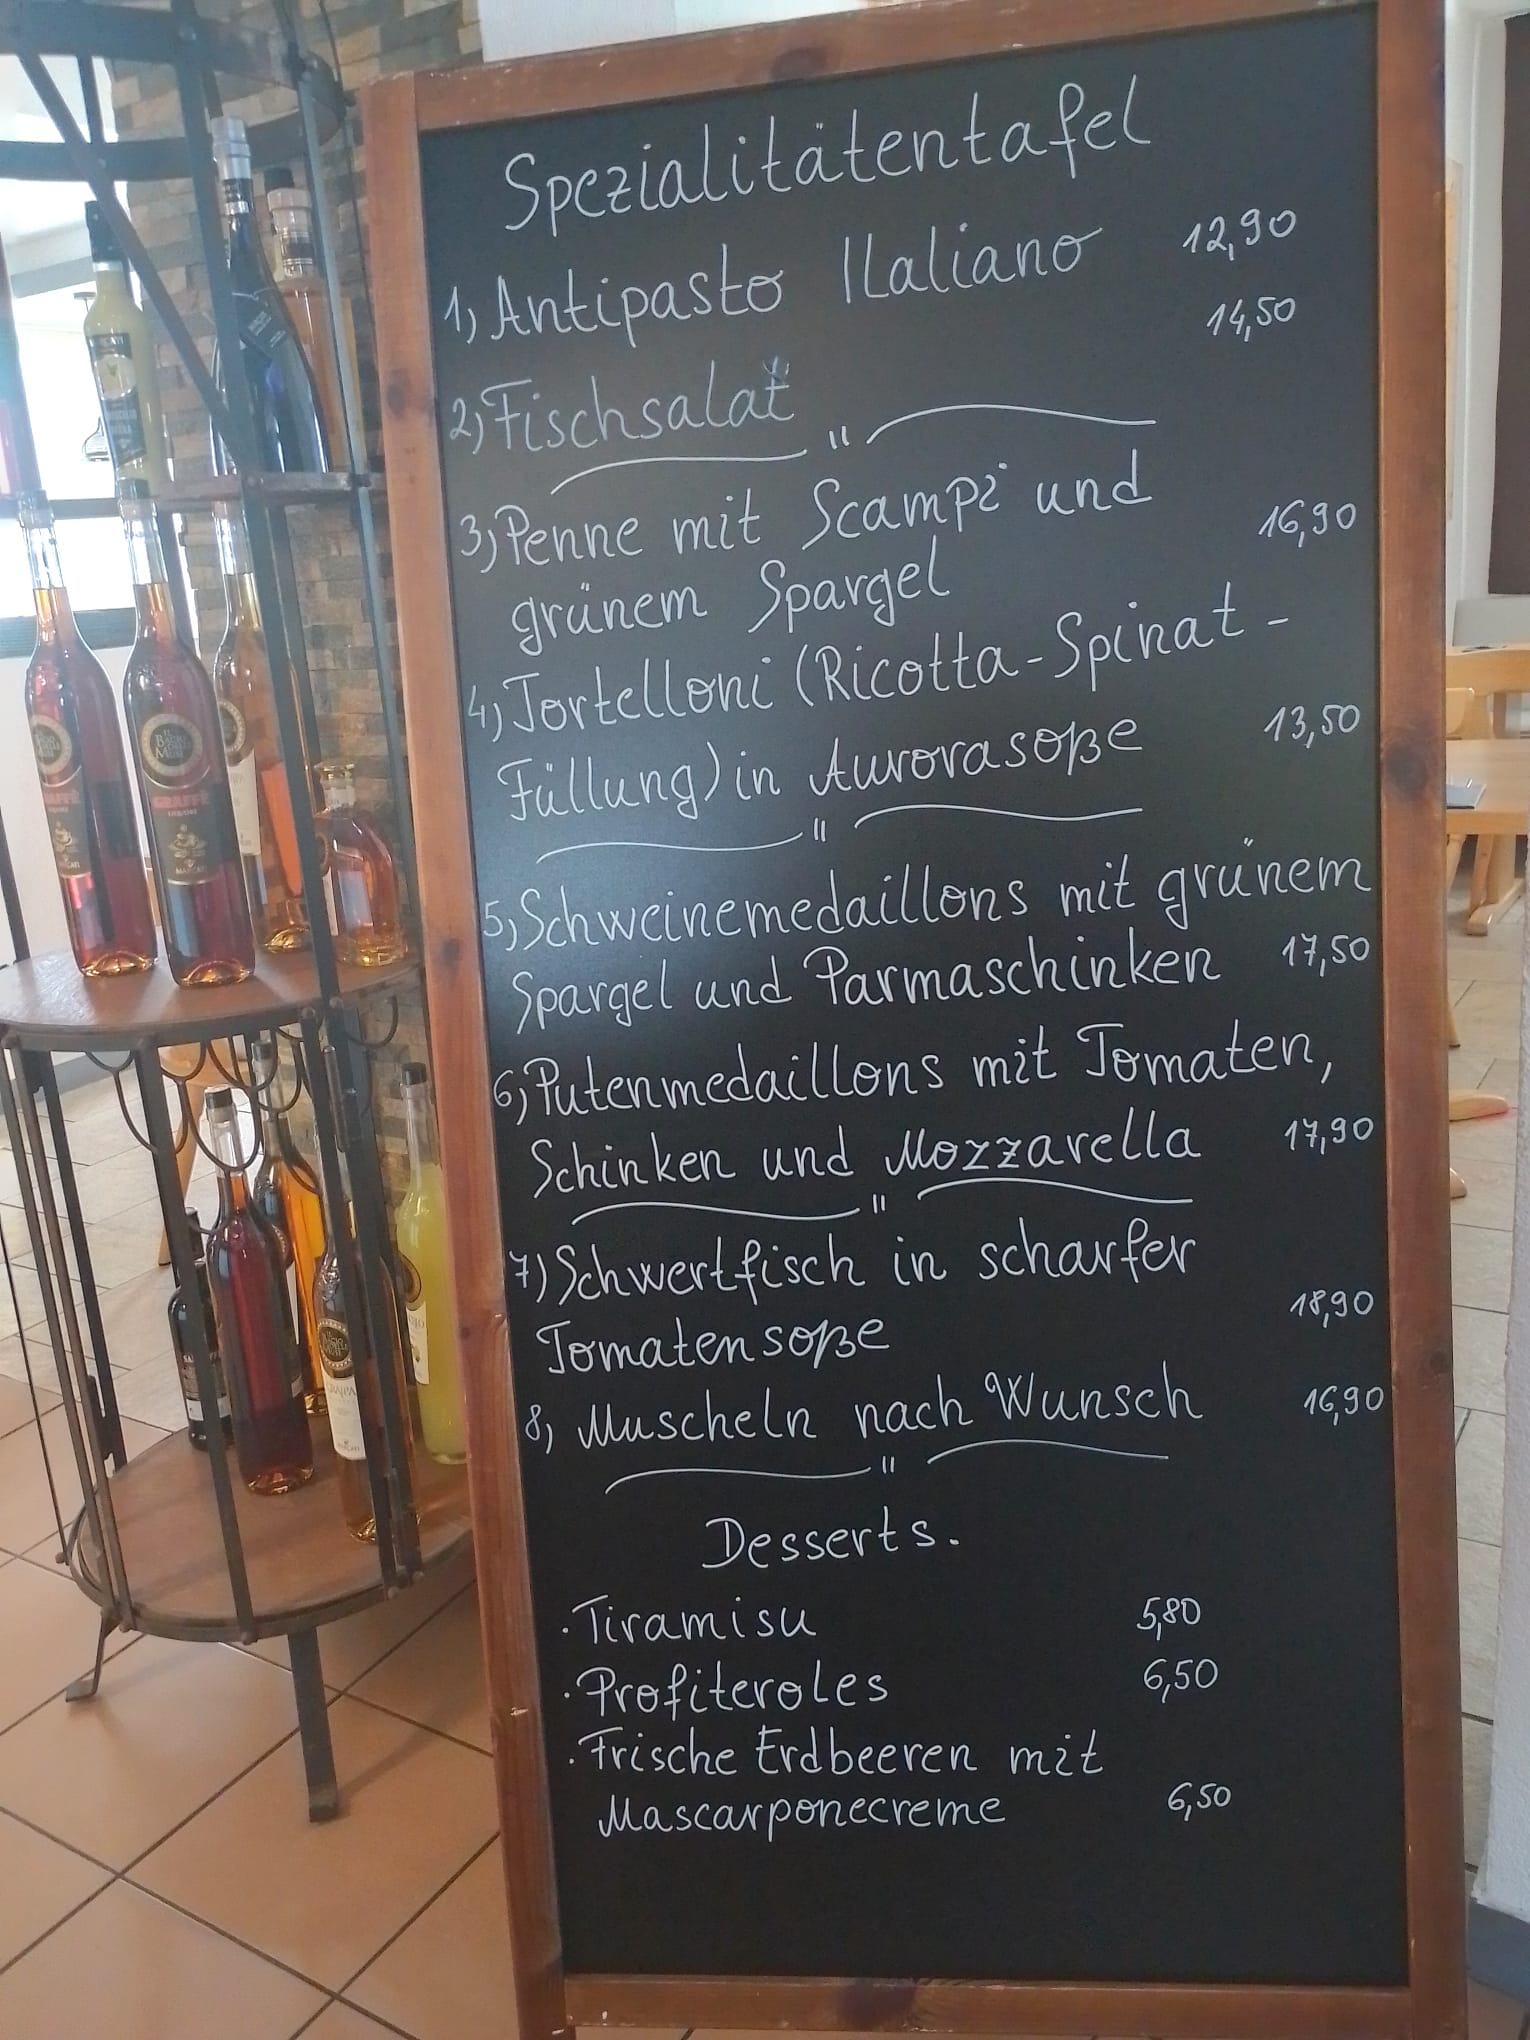 Spezialitätentafel
1) Antipasto Italiano 12,90
2) Fischsalat 14,50
"
3) Penne mit Scampi und
grünem Spargel 16,90
4) Tortelloni (Ricotta-Spinat-
Füllung) in Aurorasoße 13,50
"
5) Schweinemedaillons mit grünem
Spargel und Parmaschinken 17,50
6) Putenmedaillons mit Tomaten,
Schinken und Mozzarella 17,90
"
7) Schwertfisch in scharfer
Tomatensoße 18,90
8) Muscheln nach Wunsch 16,90
"
Desserts.
· Tiramisu 5,80
· Profiteroles 6,50
· Frische Erdbeeren mit
Mascarponecreme 6,50
IL
BACIO
DELLE
MUSE
CAFFÈ
MARCATI